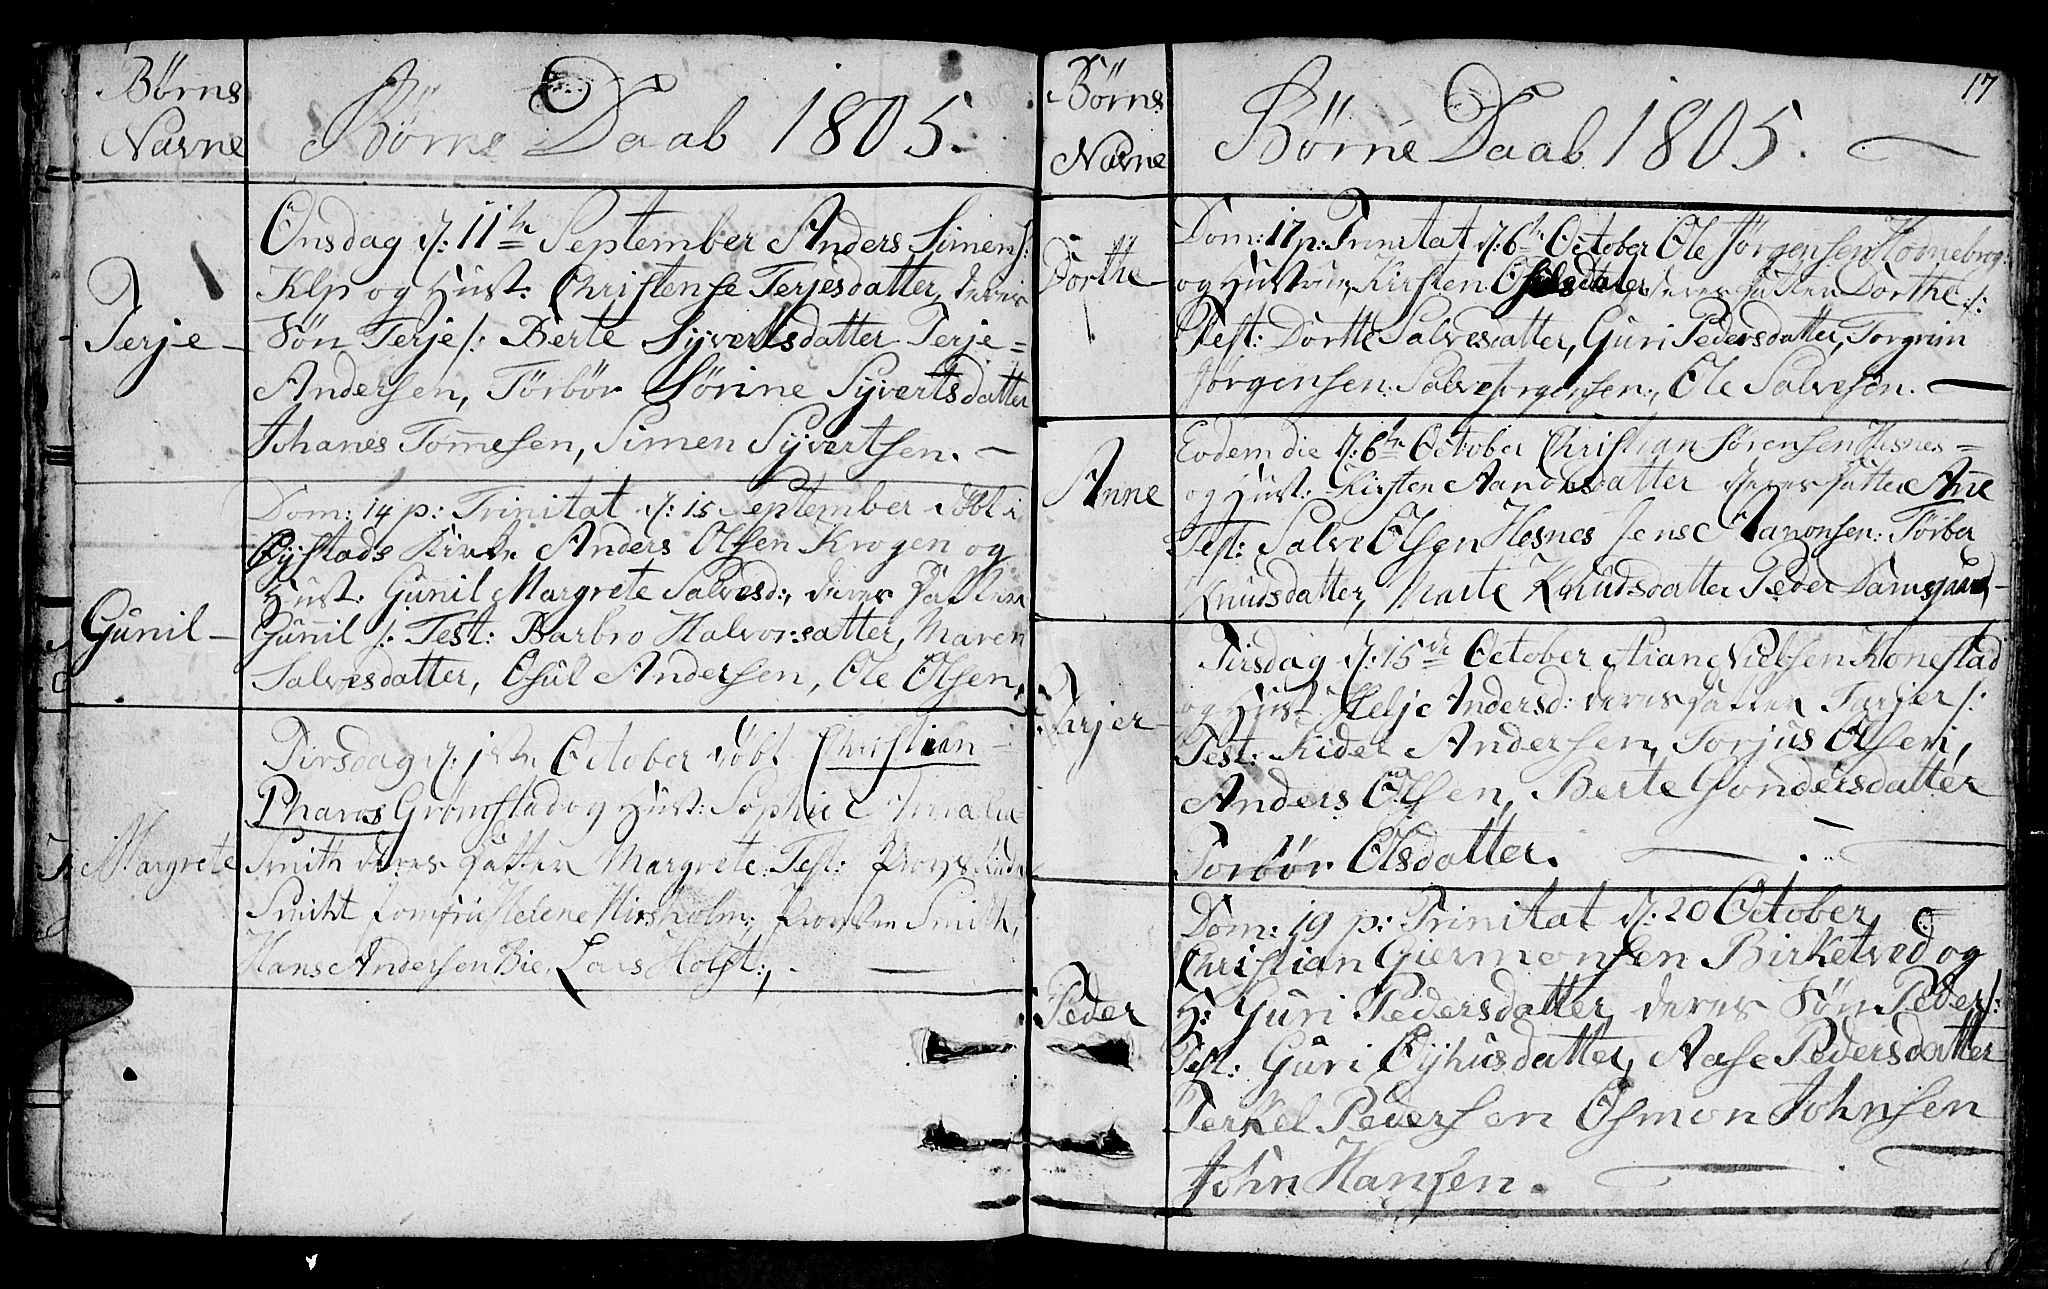 Børns
Navne
Børne Daab 1805.
Terje
Onsdag d: 11te September Anders Simens:
Klp og Hust: Christense Terjesdatter, deres
Søn Terje /: Berte Syvertsdatter Terje=
Andersen, Torbor Sørine Syvertsdatter
Johanes Tom̄esen, Simen Syvertsen. —
Gunil
Dom: 14 p: Trinitat d: 15 September døbt i
Eystads Kirke Anders Olsen Krogen og
Hust: Gunil Margrete Salvesd:, deres Datter
Gunnil /: Test: Barbro Halvorsdatter, Maren
Salvesdatter, Osul Andersen, Ole Olsen,
Margrete
Tirsdag d: 1ste October døbt Christian
Pharos Grømstad og Hust: Sophie Amalia
Smith deres Datter Margrete: Test:
Smith Jomfru Helene Hirsholm: Smith,
Hans Andersen Bie, Lars Holst:,
17
Børns
Navne
Børne Daab 1805. —
Dorthe
Dom: 17 p: Trinitat d: 6te October Ole Jørgensen Homnebrog
og Hustrue, Kirsten deres Datter Dorthe /:
Test: Dorthe Salvesdatter, Guri Pedersdatter, Torgrim
Jørgensen: Salve Jørgensen:, Ole Salvesøn. —
Anne
Eodem die d: 6te October Christian Sørensen Hesnes=
og Hust: Kirsten Aanonsdatter deres Datter An̄e
Test: Salve Olsen Hesnes Jens Aanonsen: Torber
Knudsdatter, Marte Knudsdatter Peder
Tarjer
Tirsdag d: 15de October Arian Nielsen Konestad
og Hust: Helje Andersd: deres Datter Tarjer /:
Test: Kider Andersen, Torjus Olsen,
Anders Olsen, Berte Gondersdatter
Torbor Olsdatter.
Peder
Dom: 19 p: Trinitat d: 20 October,
Christian Giermonsen Birketved og
H: Guri Pedersdatter, deres Søn Peder /:
Test: Guri Eyhusdatter, Aase Pedersdatter
Terkel Pedersen Osmon Johnsen
John Hansen.